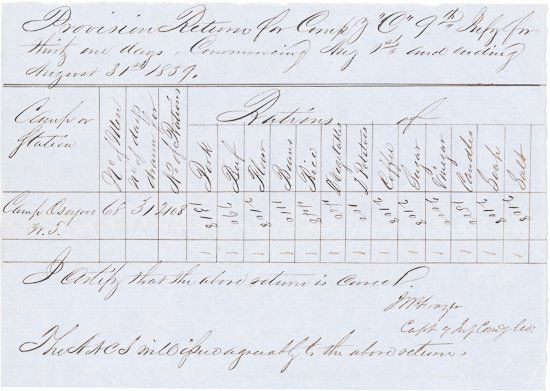 Provision Return for Comp'y "C" 9th Infy for
thirty one days, Commencing Aug 1st and ending
August 31st 1859.
Camp or Station
No of Men
No of days drawn for
No of Rations
Rations of
Pork
Beef
Flour
Beans
Rice
Vegetables
Coffee
Sugar
Vinegar
Candles
Soap
Salt
Camp Osoyoos W.T.
68
31
2108
I certify that the above return is correct.
Capt 9 Inf Comdg Co.
The A.A.C.S. will issue agreeably to the above return.